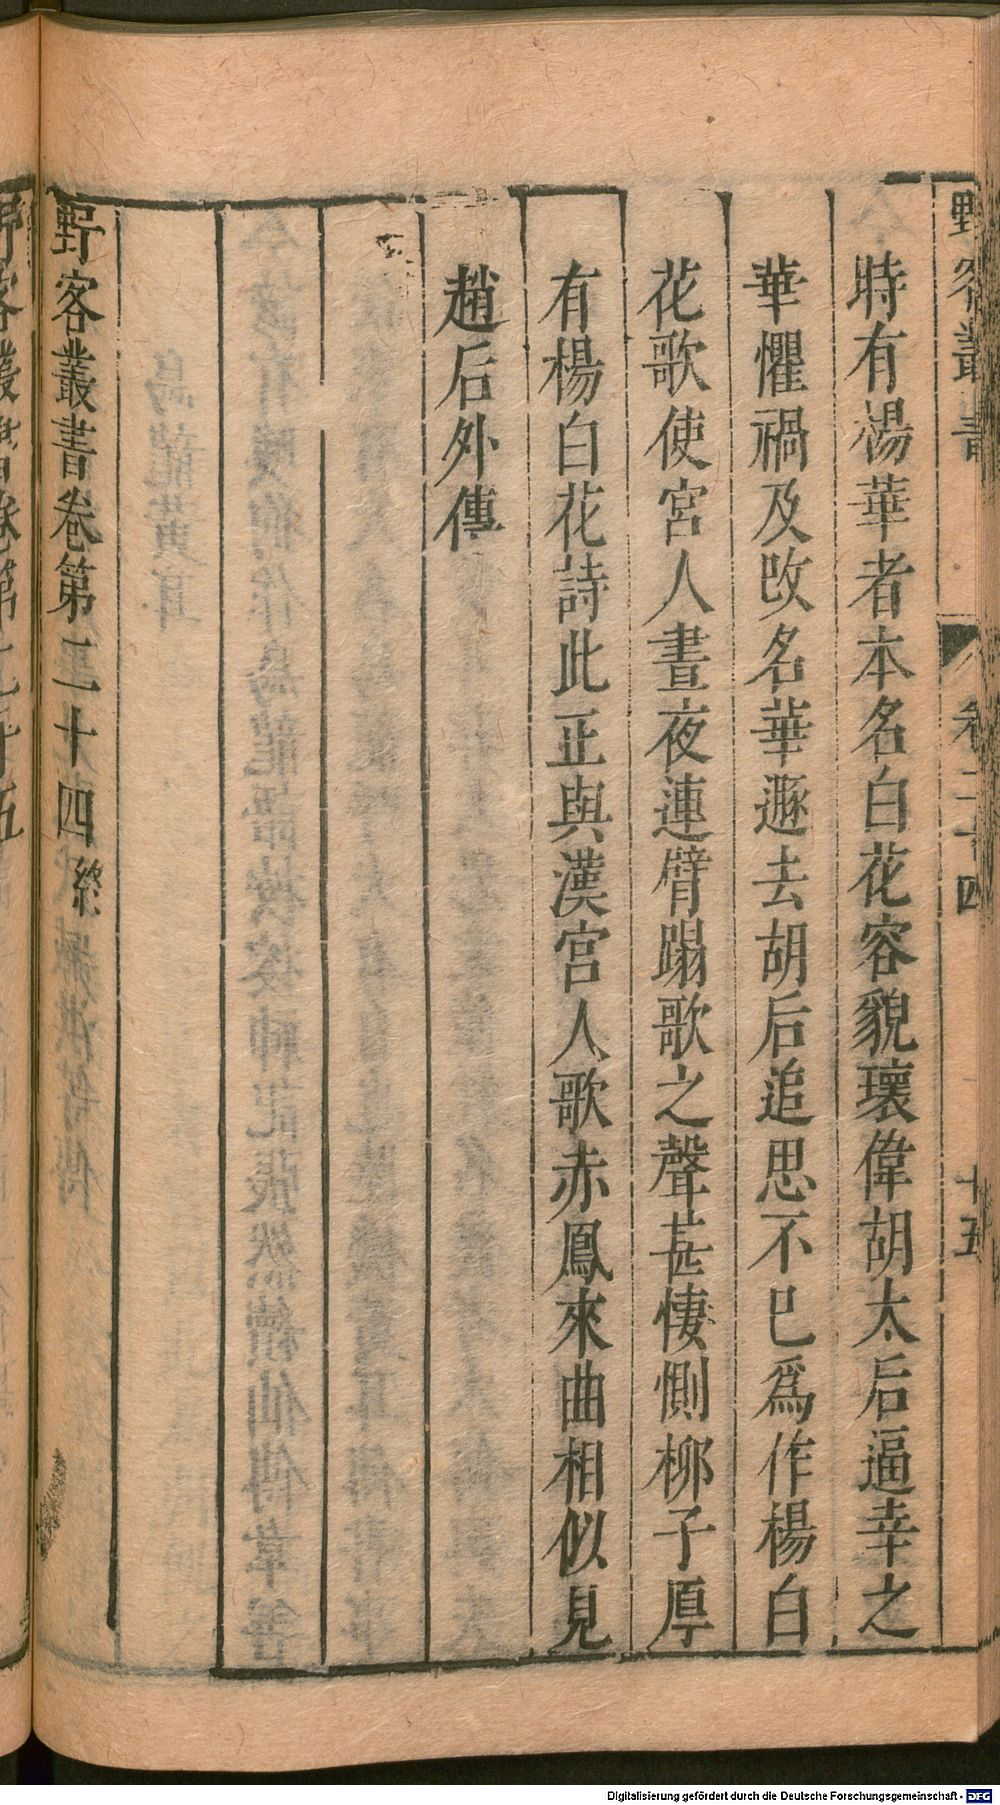 野客叢書
卷二十四
十五
時有楊華者本名白花容貌瓌偉胡太后逼幸之
華懼禍及改名華遯去胡后追思不已爲作楊白
花歌使宮人晝夜連臂蹋歌之聲甚悽惻柳子厚
有楊白花詩此正與漢宮人歌赤鳳來曲相似見
趙后外傳
野客叢書卷第二十四終
Digitalisierung gefördert durch die Deutsche Forschungsgemeinschaft - DFG